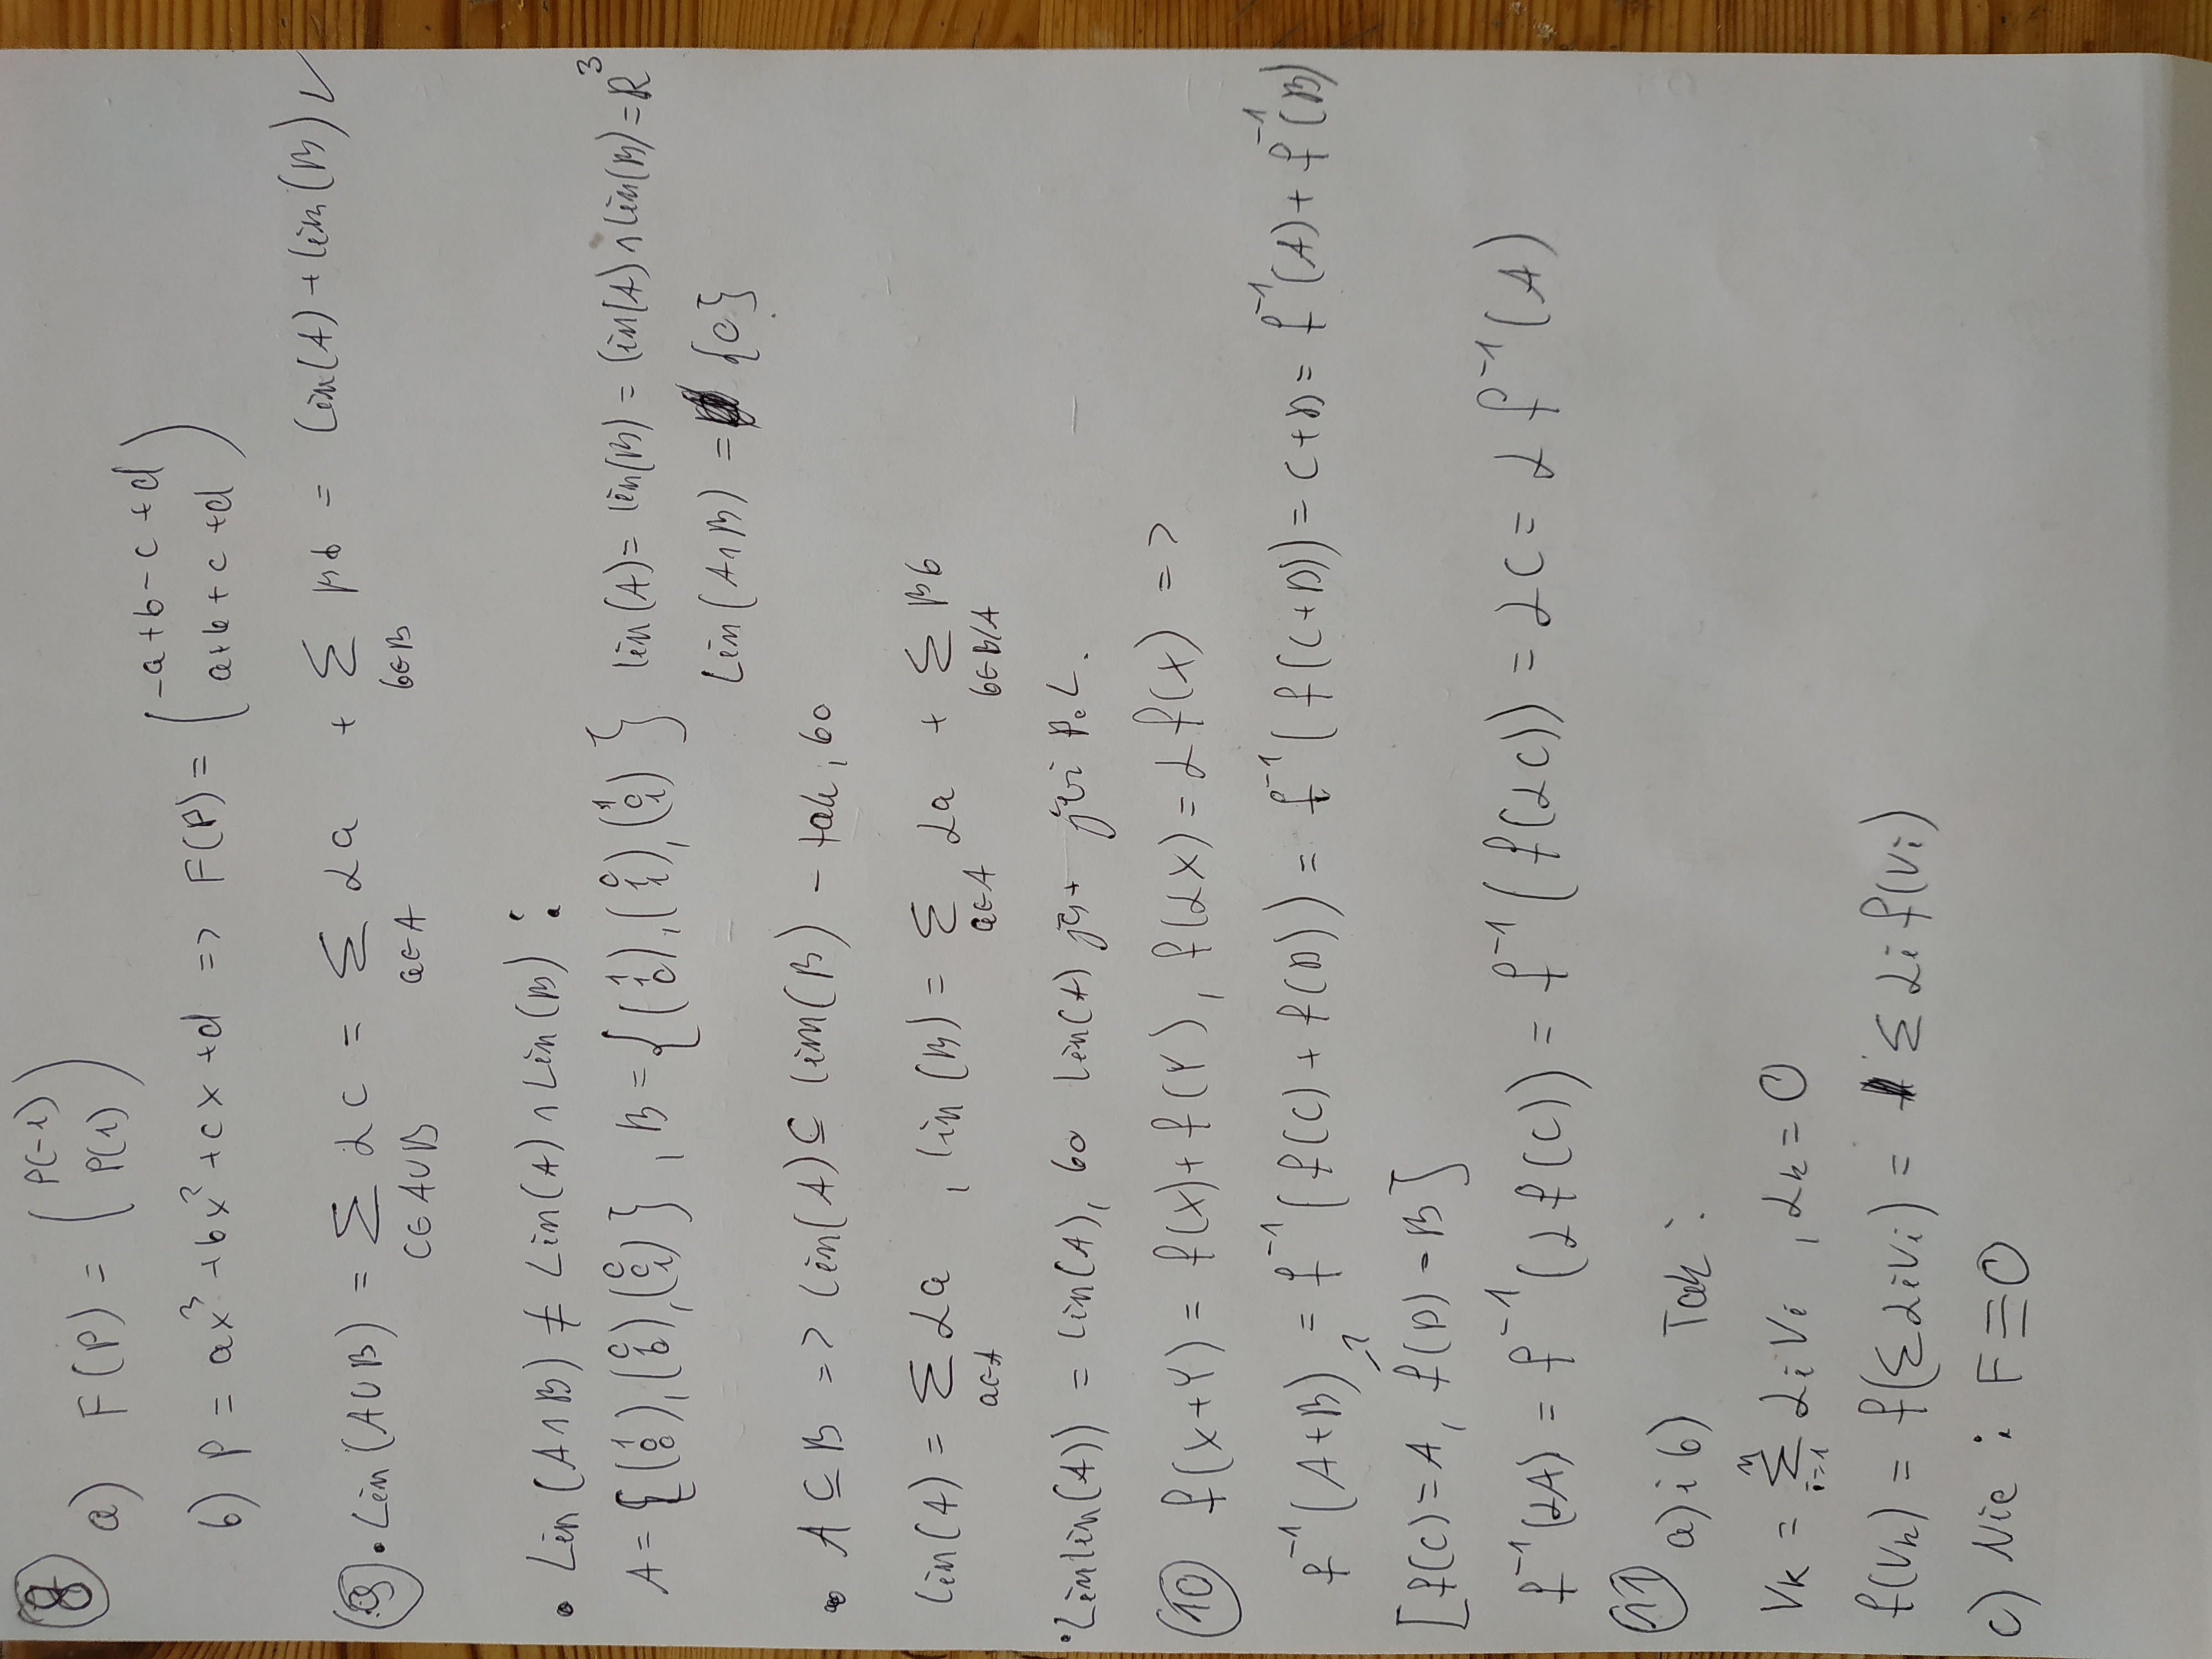 8
a) F(P) = (P(-1) P(1))
b) P = ax³ + bx² + cx + d => F(P) = (-a+b-c+d a+b+c+d)
9 • Lin(A∪B) = Σ αc = Σ αa + Σ βb = Lin(A) + Lin(B) ✓
c∈A∪B a∈A b∈B
• Lin(A∩B) ≠ Lin(A) ∩ Lin(B) :
A = {(1 0 0), (0 1 0), (0 0 1)}, B = {(1 1 0), (0 1 1), (1 0 1)} Lin(A) = Lin(B) = Lin(A) ∩ Lin(B) = R³
Lin(A∩B) = {0}
• A ⊆ B => Lin(A) ⊆ Lin(B) - tak, bo
Lin(A) = Σ αa , Lin(B) = Σ αa + Σ βb
a∈A a∈A b∈B/A
• Lin Lin(A)) = Lin(A), bo Lin(A) jest już P.L.
10 f(X+Y) = f(X) + f(Y), f(αX) = αf(X) =>
f⁻¹(A+B) = f⁻¹(f(C) + f(D)) = f⁻¹(f(C+D)) = C+D = f⁻¹(A) + f⁻¹(B)
[f(C) = A, f(D) = B]
f⁻¹(αA) = f⁻¹(αf(C)) = f⁻¹(f(αC)) = αC = αf⁻¹(A)
11
a) i b) Tak :
Vk = Σ αi Vi , αk = 0
n
i=1
f(Vk) = f(Σ αi Vi) = Σ αi f(Vi)
c) Nie : F ≡ 0